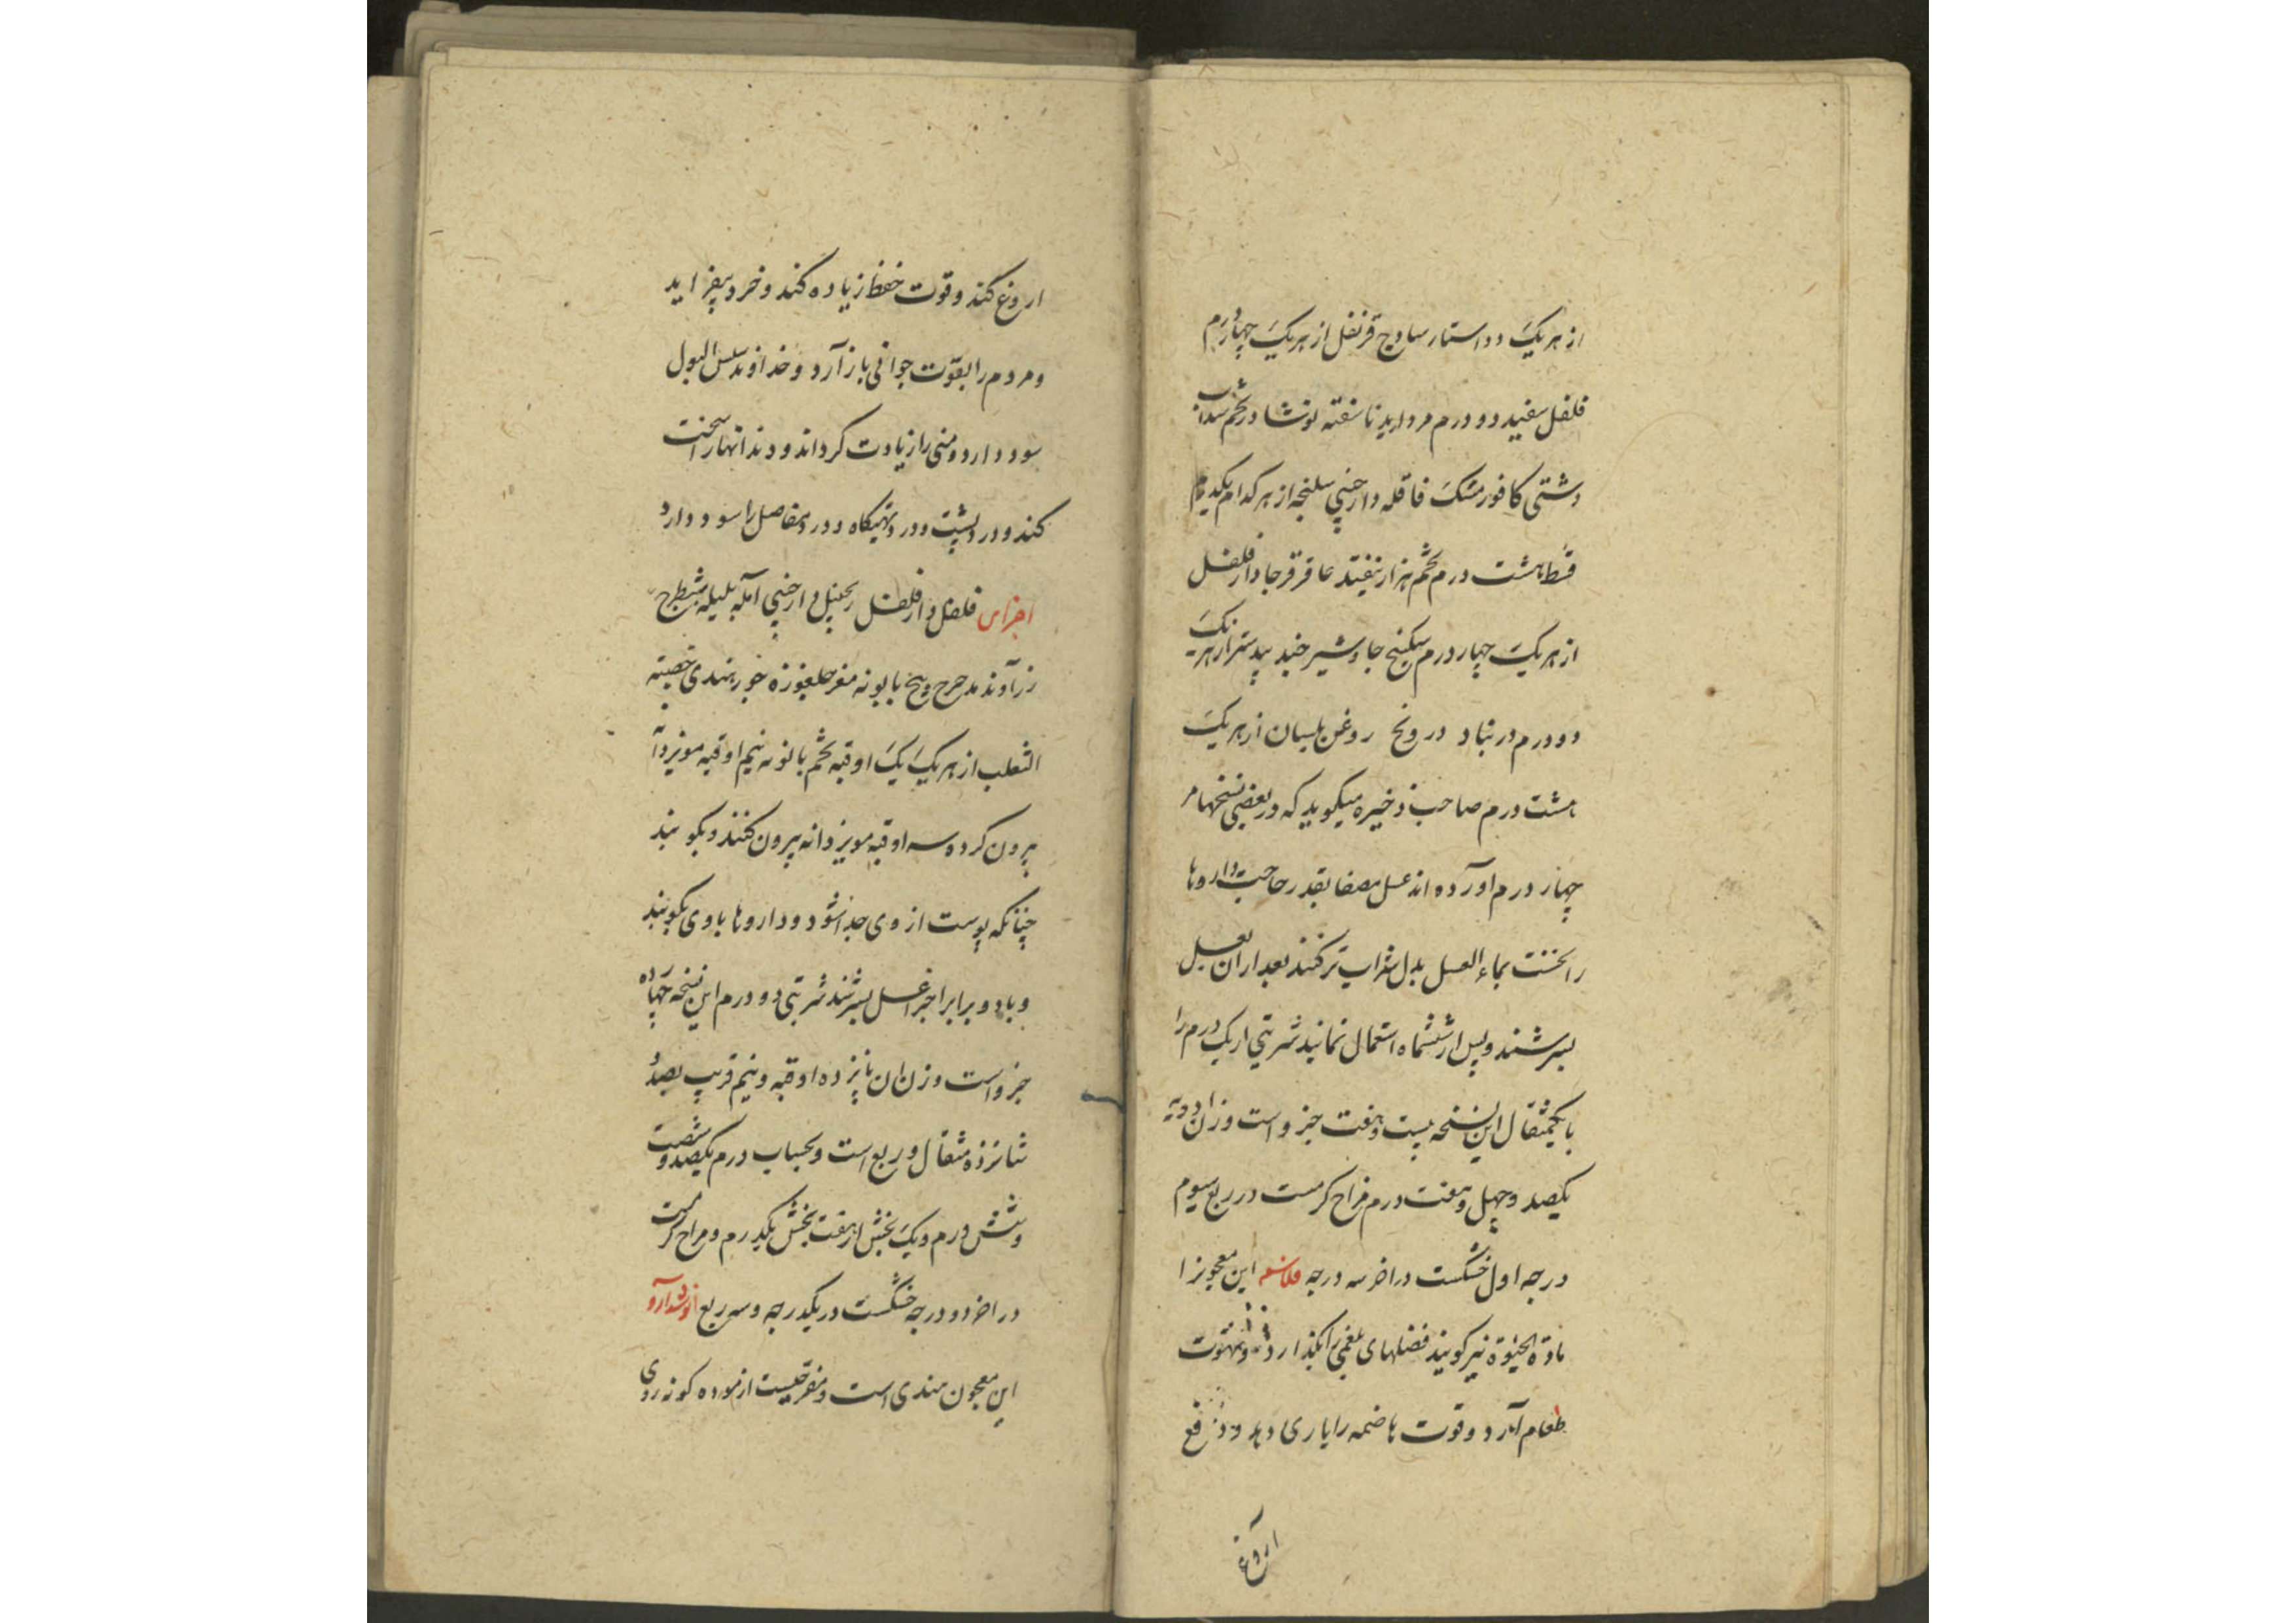 از هر یک دو استار ساوج قرنفل از هر یک چهار درم
فلفل سفید دو درم مروارید ناسفته نوشادر تخم سداب
دشتی کافور مشک قاقله دارچینی سلنجه از هر کدام یکدرم
قسط هشت درم تخم هزار نفیتد عاقرقرحا دارفلفل
از هر یک چهار درم سکبینج جاوشیر جند بیدستر از هر یک
دو درم درنباد درونج روغن بلسان از هر یک
هشت درم صاحب ذخیره میکوید که در بعضی نسخها مر
چهار درم آورده اند عسل مصفا بقدر حاجت داروها
را نخست بماء العسل بدل شراب تر کنند بعد ازان بعسل
بسرشند و پس از ششماه استعمال نمانید شربتی از یک درم را
با یکمثقال این نسخه بیست و هفت جزو است وزن ادویه
یکصد و چهل و هفت درم مزاج کرمست در ربع سیوم
درجه اول خشکست در اخر سه درجه فلاسفه این معجونرا
مادة الحیوة نیر کویند فضلهای بلغمی را بکدارد و شهوت
طعام آرد و قوت هاضمه را یاری دهد و دفع
آروغ
اروغ کند و قوت حفظ زیاده کند و خرد بیفزاید
و مردم را بقوت جوانی باز آرد و خداوند سلس البول
سود دارد و منی را زیادت کرداند و دندانها را سخت
کند و درد پشت و درد تهیکاه و درد مفاصل را سود دارد
اجزای فلفل دارفلفل زنجبیل دارچینی آمله بلیله شیطرج
زرآوند مدحرج و بیخ بابونه مغز جلغوزه جوز هندی خصیته
الثعلب از هر یک یک اوقیه تخم بابونه نیم اوقیه مویز دانه
بیرون کرده سه اوقیه مویز دانه بیرون کنند و بکوبند
چنانکه پوست از وی جدا شود و داروها با وی بکوبند
و با دو برابر اجزا عسل بسرشند شربتی دو درم این نسخه چهارده
جزو است وزن ان پانزده اوقیه و نیم قریب بصد و
شانزده مثقال و ربع است و بحساب درم یکصد و شصت
و شش درم و یک بخش از هفت بخش یکدرم و مزاج کرمست
در اخر دو درجه خشکست در یکدرجه و سه ربع انوشدارو
این معجون هندی است و مفرحیست ازموده کونه روی